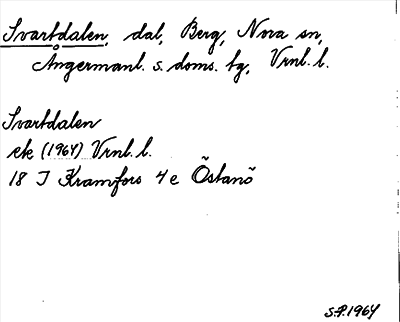 Svartdalen, dal, Berg, Nora sn,
Ångermanl. s. doms. tg, Vrnl. l.
Svartdalen
ek (1964) Vrnl. l.
18 I Kramfors 4 e Östanö
S.P. 1964